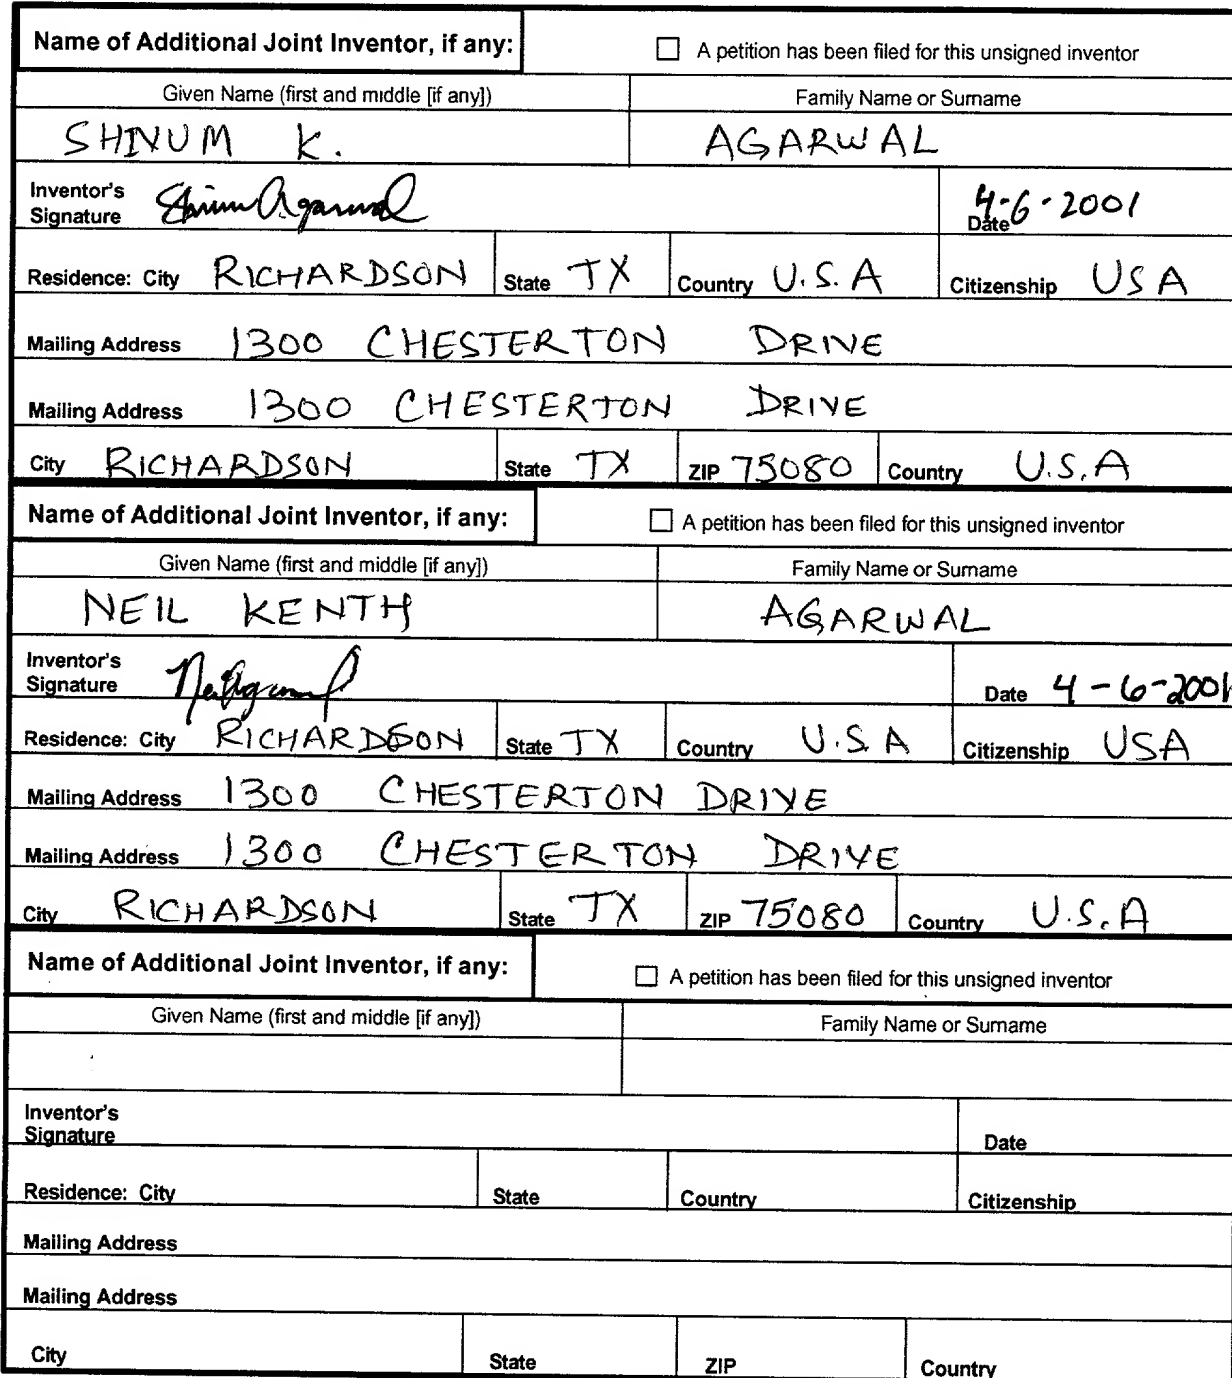 Name of Additional Joint Inventor, if any: ☐ A petition has been filed for this unsigned inventor
Given Name (first and middle [if any]) Family Name or Surname
SHINUM K. AGARWAL
Inventor's
Signature Shinum Agarwal 4-6-2001
Date
Residence: City RICHARDSON State TX Country U.S.A Citizenship USA
Mailing Address 1300 CHESTERTON DRIVE
Mailing Address 1300 CHESTERTON DRIVE
City RICHARDSON State TX ZIP 75080 Country U.S.A
Name of Additional Joint Inventor, if any: ☐ A petition has been filed for this unsigned inventor
Given Name (first and middle [if any]) Family Name or Surname
NEIL KENTH AGARWAL
Inventor's
Signature Neil Agarwal Date 4-6-2001
Residence: City RICHARDSON State TX Country U.S.A Citizenship USA
Mailing Address 1300 CHESTERTON DRIVE
Mailing Address 1300 CHESTERTON DRIVE
City RICHARDSON State TX ZIP 75080 Country U.S.A
Name of Additional Joint Inventor, if any: ☐ A petition has been filed for this unsigned inventor
Given Name (first and middle [if any]) Family Name or Surname
Inventor's
Signature Date
Residence: City State Country Citizenship
Mailing Address
Mailing Address
City State ZIP Country